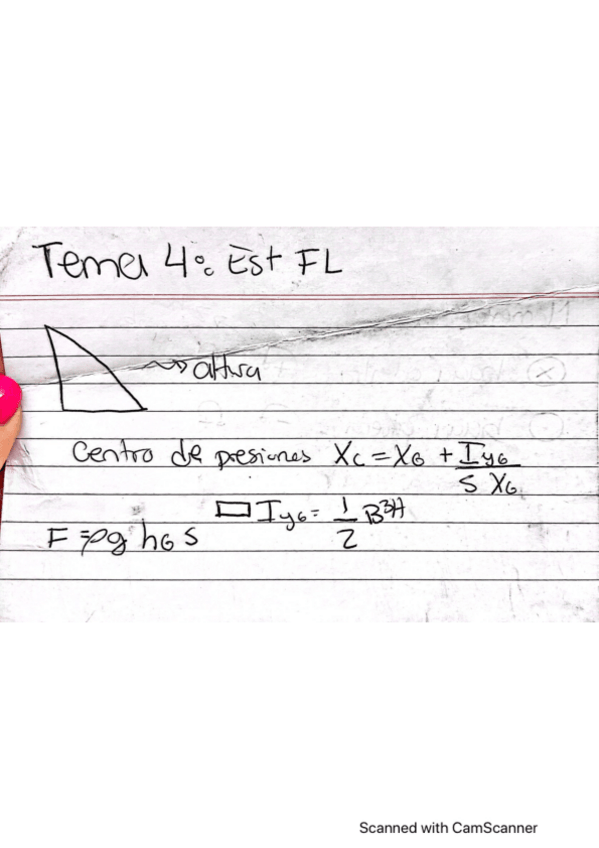 Tema 4: Est FL
altura
Centro de presiones Xc = XG + IyG / S XG
IyG = 1/2 B³H
F = ρg hG S
Scanned with CamScanner